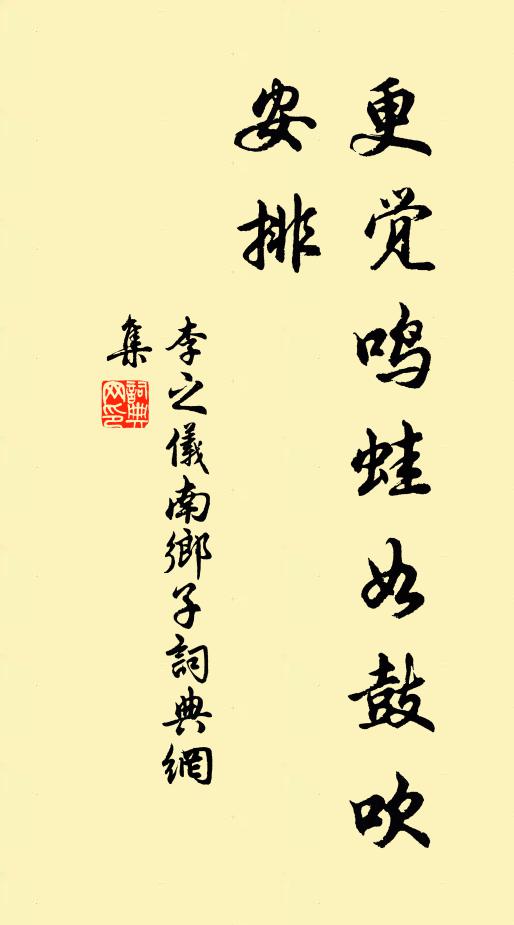 更觉鸣蛙如鼓吹
安排
李之儀南鄉子詞典網
集
詞典
网印